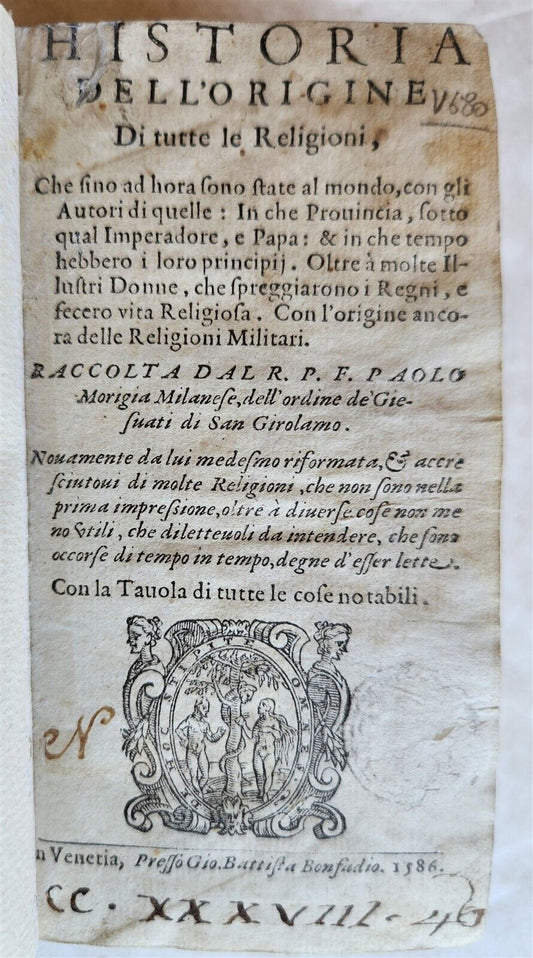 HISTORIA
DELL'ORIGINE
V680
Di tutte le Religioni,
Che ſino ad hora ſono ſtate al mondo, con gli
Autori di quelle: In che Prouincia, ſotto
qual Imperadore, e Papa: & in che tempo
hebbero i loro principij. Oltre à molte Il-
luſtri Donne, che ſpreggiarono i Regni, e
fecero vita Religioſa. Con l'origine anco-
ra delle Religioni Militari.
RACCOLTA DAL R. P. F. PAOLO
Morigia Milaneſe, dell'ordine de' Gie-
ſuati di San Girolamo.
Nouamente da lui medeſmo riformata, & accre
ſciutoui di molte Religioni, che non ſono nella
prima impreſſione, oltre à diuerſe coſe non me
no vtili, che diletteuoli da intendere, che ſono
occorſe di tempo in tempo, degne d'eſſer lette.
Con la Tauola di tutte le coſe notabili.
DE HOC STIPITE OMNES
N
n Venetia, Preſſo Gio. Battiſta Bonfadio. 1586.
CC. XXXVIII. 40